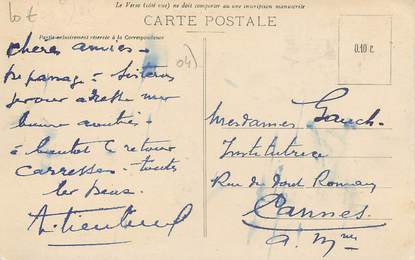 lot
Le Verso (côté vue) ne doit comporter au une inscription manuscrite
CARTE POSTALE
Partie exclusivement réservée à la Correspondance
0.10 c.
04)
chères amies -
de passage à Sisteron
je vous adresse mon
bon
à bientôt le retour
Caresses - toutes
les deux
Mesdames Gauch
Institutrice
Rue du Font Romeu
Cannes
A. Mmes